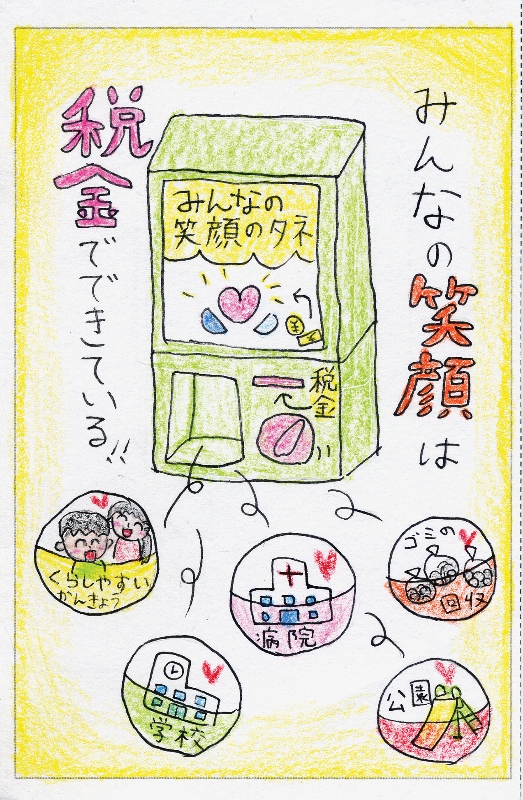 みんなの笑顔は
税金でできている!!
みんなの
笑顔のタネ
税金
くらしやすい
かんきょう
病院
ゴミの
回収
学校
公園